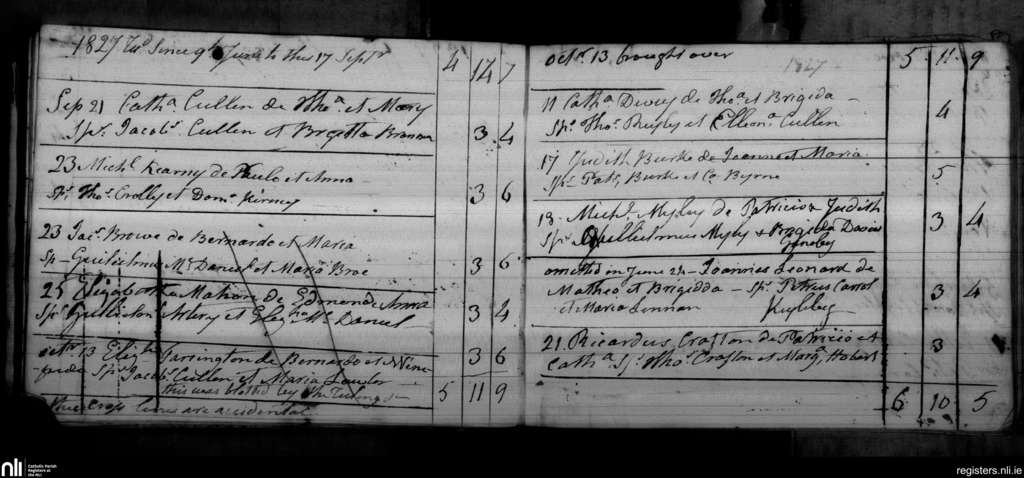 1827 Tus Since 9th June to this 17 Septr 4 14 7
Sep 21 Catha Cullen de Thoa et Mary
Sprs Jacobs Cullen et Brgetta 3. 4
23 Michl Kearny de Paulo et Anna
Sprs Thos Crolly et Doms Kirney 3 6
23 Jacs Browe de Bernardo et Maria
Sp- Guilielmus Mc Daniel et Maria Broe 3 6
25 Elizabetha Mahon de Edmond et Anna
Sprs Guillielm et Eliz Mc Daniel 3 4
octr 13 Elizth Farrington de Bernardo et Wini- 3 6
fride Sprs Jacobs Cullen et Maria Lawlor
this was blotted by the 5 11 9
these cross lines are accidental
octr 13 brought over 5 11 9
1827
11 Catha de Thoa et Brigida - 4
Sprs Thos et Elliona Cullen
17 Judith Burke de Joanne et Maria
Sprs Pats Burke et Ca Byrne 5
18 Michl Myley de Patricio et Judith
Sprs Gulielmus Myly & Brigidda 3 4
omitted in June 24 - Joannes Leonard de
Matheo et Brigidda - Sprs Petrus Carrol 3 4
et Maria Lennan
21. Ricardus Crofton de Patricio et 3
Catha Sprs Thos Crofton et Marg. Hobart
6 10 5
nli
Catholic Parish
Registers at
the NLI
registers.nli.ie